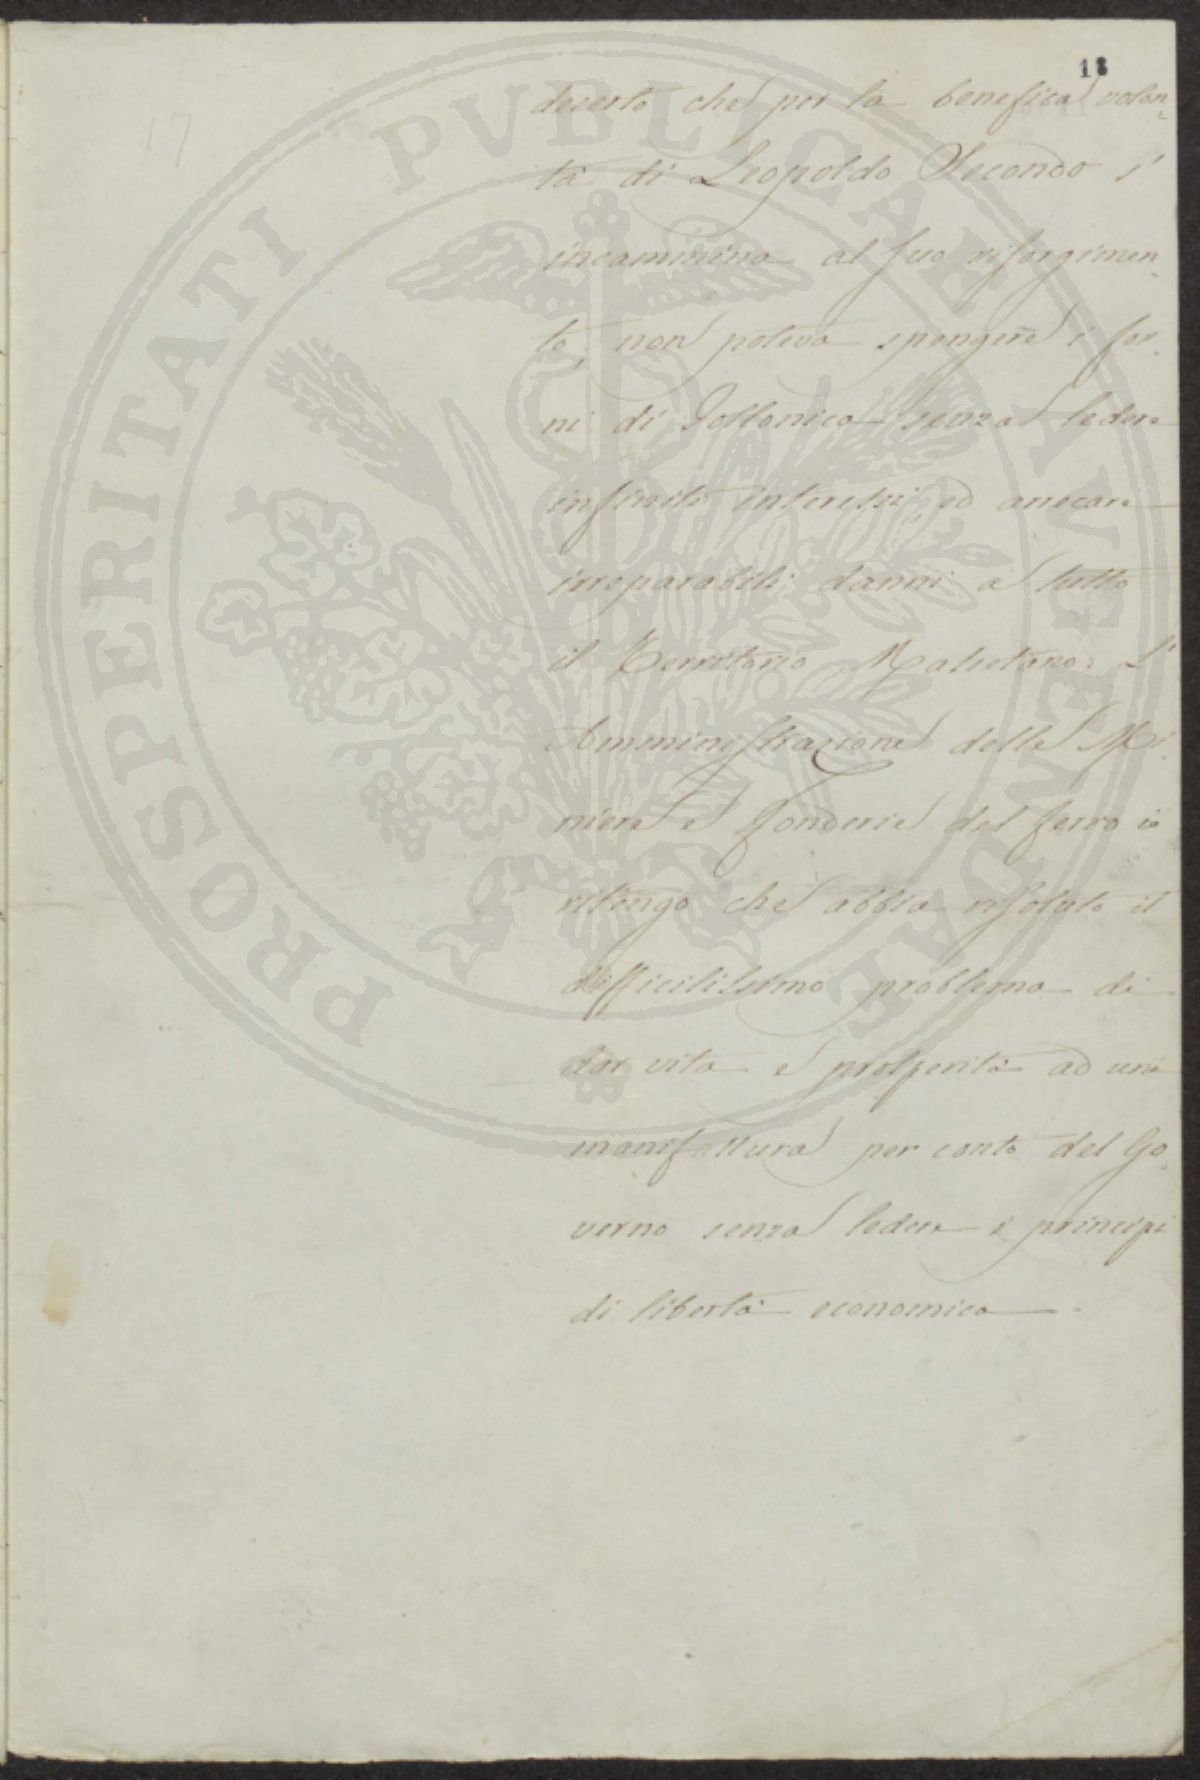 18
17
deserto che per la benefica volon=
tà di Leopoldo Secondo s'
incammina al suo risorgimen=
to, non poteva spengere i for=
ni di Follonica senza ledere
infiniti interessi, ed arrecare
irreparabili danni a tutto
il Territorio Massetano. L'
Amministrazione delle Mi=
niere e Fonderie del ferro io
ritengo che abbia risoluto il
difficilissimo problema di
dar vita e prosperità ad una
manifattura per conto del Go=
verno senza ledere i principi
di libertà economica.
PROSPERITATI PVBLICAE AVGENDAE